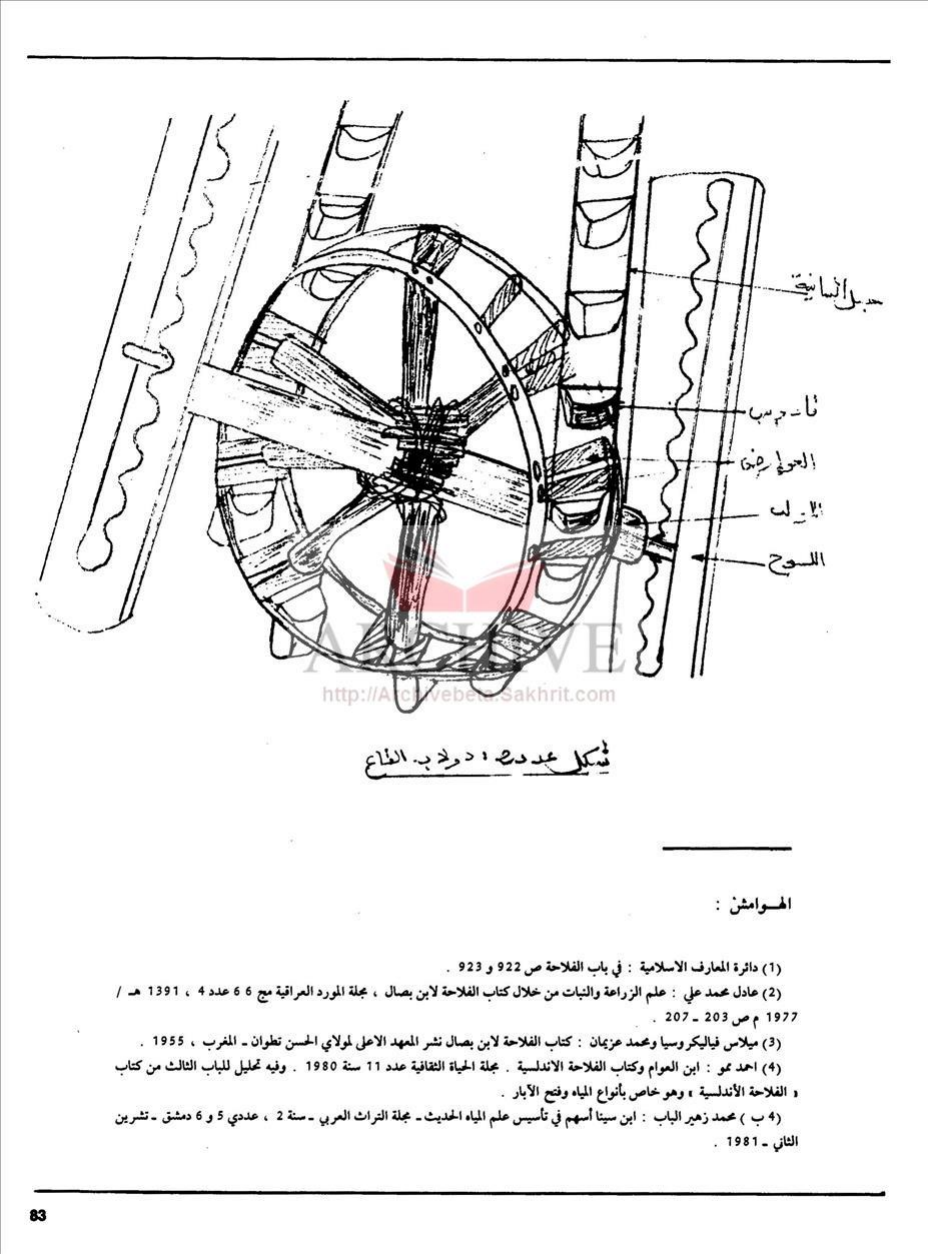 حبل السانية
قادوس
العوارض
اللوح
ARCHIVE
http://Archivebeta.Sakhrit.com
شكل عدد : دولاب القاع
الهـوامش :
(1) دائرة المعارف الاسلامية : في باب الفلاحة ص 922 و 923 .
(2) عادل محمد علي : علم الزراعة والنبات من خلال كتاب الفلاحة لابن بصال ، مجلة المورد العراقية مج 6 6 عدد 4 ، 1391 هـ /
1977 م ص 203 ـ 207 .
(3) ميلاس فياليكروسيا ومحمد عزيمان : كتاب الفلاحة لابن بصال نشر المعهد الاعلى لمولاي الحسن تطوان ـ المغرب ، 1955 .
(4) احمد ممو : ابن العوام وكتاب الفلاحة الاندلسية . مجلة الحياة الثقافية عدد 11 سنة 1980 . وفيه تحليل للباب الثالث من كتاب
« الفلاحة الأندلسية » وهو خاص بأنواع المياه وفتح الآبار .
(4 ب ) محمد زهير البابا : ابن سينا أسهم في تأسيس علم المياه الحديث ـ مجلة التراث العربي ـ سنة 2 ، عددي 5 و 6 دمشق ـ تشرين
الثاني ـ 1981 .
83